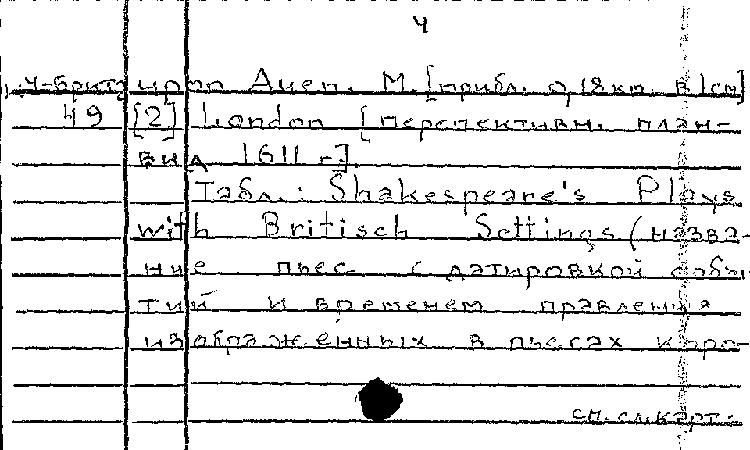 4
М. [прибл. 0,18км в 1см]
49 [2] London [перспективн. план-
вид 1611 г].
Табл.: Shakespeare's Plays
with Britisch Settings (назва-
ние пьес с датировкой собы-
тий и временем правления
изображенных в пьесах коро-
см. сл. карт.